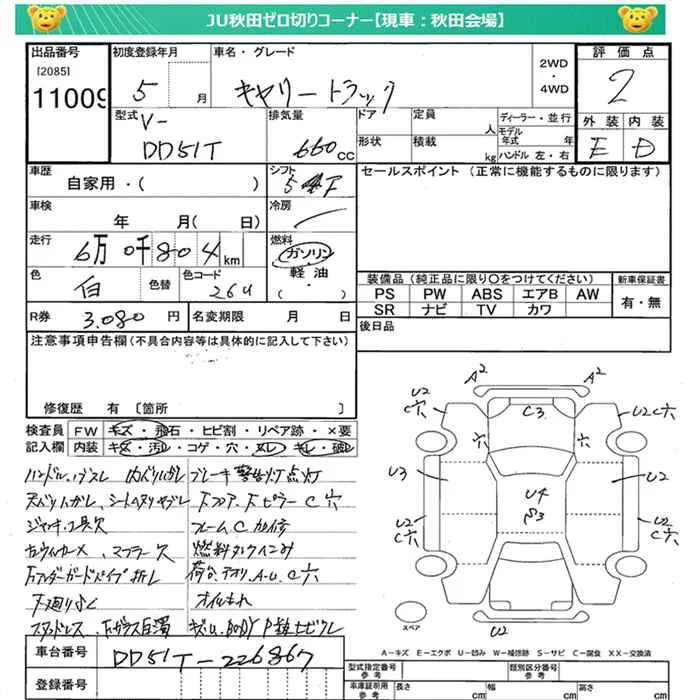 JU秋田ゼロ切りコーナー【現車：秋田会場】
出品番号 初度登録年月 車名・グレード 評価点
[2085]
11009 5 月 キャリートラック 2WD・4WD 2
型式 V- 排気量 ドア 定員 人 ディーラー・並行 外装 内装
DD51T 660 CC 形状 積載 kg モデル年式 年 ハンドル 左・右 E D
車歴 シフト セールスポイント（正常に機能するものに限ります）
自家用・( ) 5 F
車検 冷房
年 月( 日)
走行 燃料
6万 0千 8 0 4 km ガソリン
軽油
( ・ )
色 色替 色コード
白 26U
装備品（純正品に限り○をつけてください） 新車保証書
PS PW ABS エアB AW 有・無
SR ナビ TV カワ
R券 3.080 円 名変期限 月 日
後日品
注意事項申告欄(不具合内容等は具体的に記入して下さい)
修復歴 有〔箇所 〕
検査員 FW キズ・飛石・ヒビ割・リペア跡・×要
記入欄 内装 キズ・汚レ・コゲ・穴・スレ・キレ・破レ
ハンドル、ダブスレ 内バリハガレ ブレーキ警告灯点灯
天バリハガレ、シートヘタリヤブレ 下フロア、下ピラーC穴
ジャッキ・工具欠 フレームC加修
センターカメ、マフラー欠 燃料タンク凹み
Fアンダーガードパイプ折レ 荷台、アオリ、A.U.C穴
下廻りサビ オイルもれ
スタッドレス、Fガラス白濁 キズ.U.BODY P粉土ビクレ
A2 A2
U2 C穴 C3 U2 C穴
穴 穴
U3 U4 U2
S3
U2 C穴 U2 C穴
U2
スペア
A－キズ E－エクボ U－凹み W－補修跡 S－サビ C－腐食 XX－交換済
車台番号 DD51T-226867
登録番号
型式指定番号 参考 類別区分番号 参考
車庫証明用 参考 長さ cm 幅 cm 高さ cm